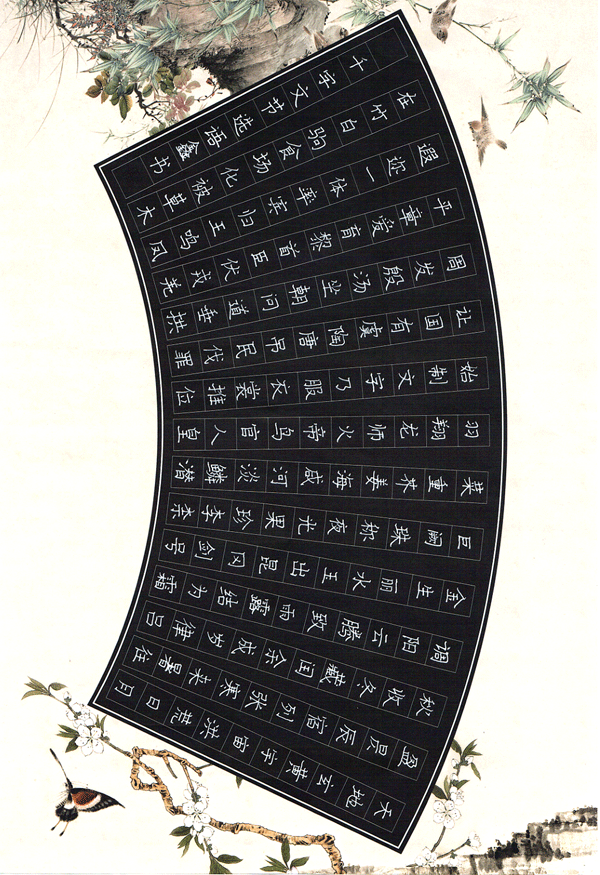 天地玄黄宇宙洪荒日月
盈昃辰宿列张寒来暑往
秋收冬藏闰余成岁律吕
调阳云腾致雨露结为霜
金生丽水玉出昆冈剑号
巨阙珠称夜光果珍李柰
菜重芥姜海咸河淡鳞潜
羽翔龙师火帝鸟官人皇
始制文字乃服衣裳推位
让国有虞陶唐吊民伐罪
周发殷汤坐朝问道垂拱
平章爱育黎首臣伏戎羌
遐迩一体率宾归王鸣凤
在竹白驹食场化被草木
千字文节选语鑫书